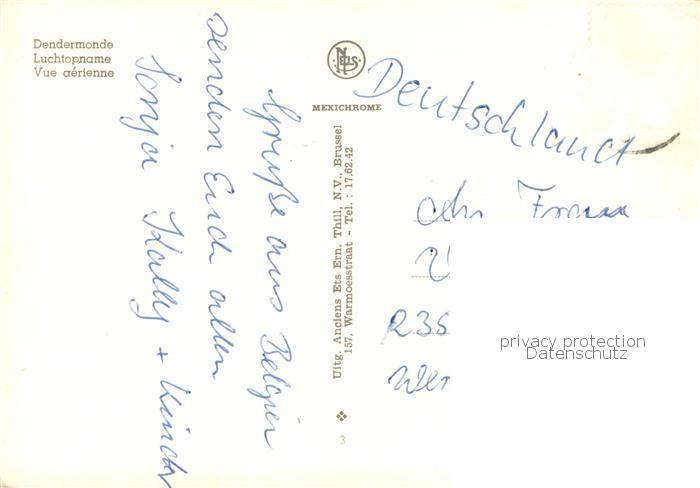 Dendermonde
Luchtopname
Vue aérienne
NELS
MEXICHROME
Grüße aus Belgien
senden Euch allen
Sonja + Kinder
Uitg. Anciens Ets Ern. Thill, N.V., Brussel
157, Warmoesstraat - Tel. : 17.62.42
3
Deutschland
an Frau
privacy protection
Datenschutz